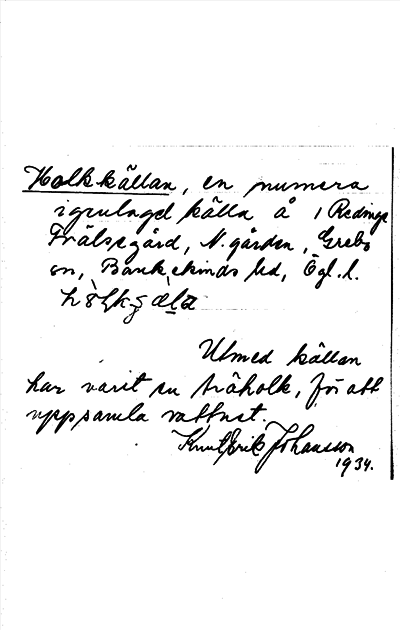 Holkkällan, en numera
igenlagd källa å 1 Redinge
Frälsegård, N. gården, Grebo
sn, Bankekinds hd, Ögl. l.

Utmed källan
har varit en träholk, för att
uppsamla vattnet.
Knut Erik Johansson
1934.